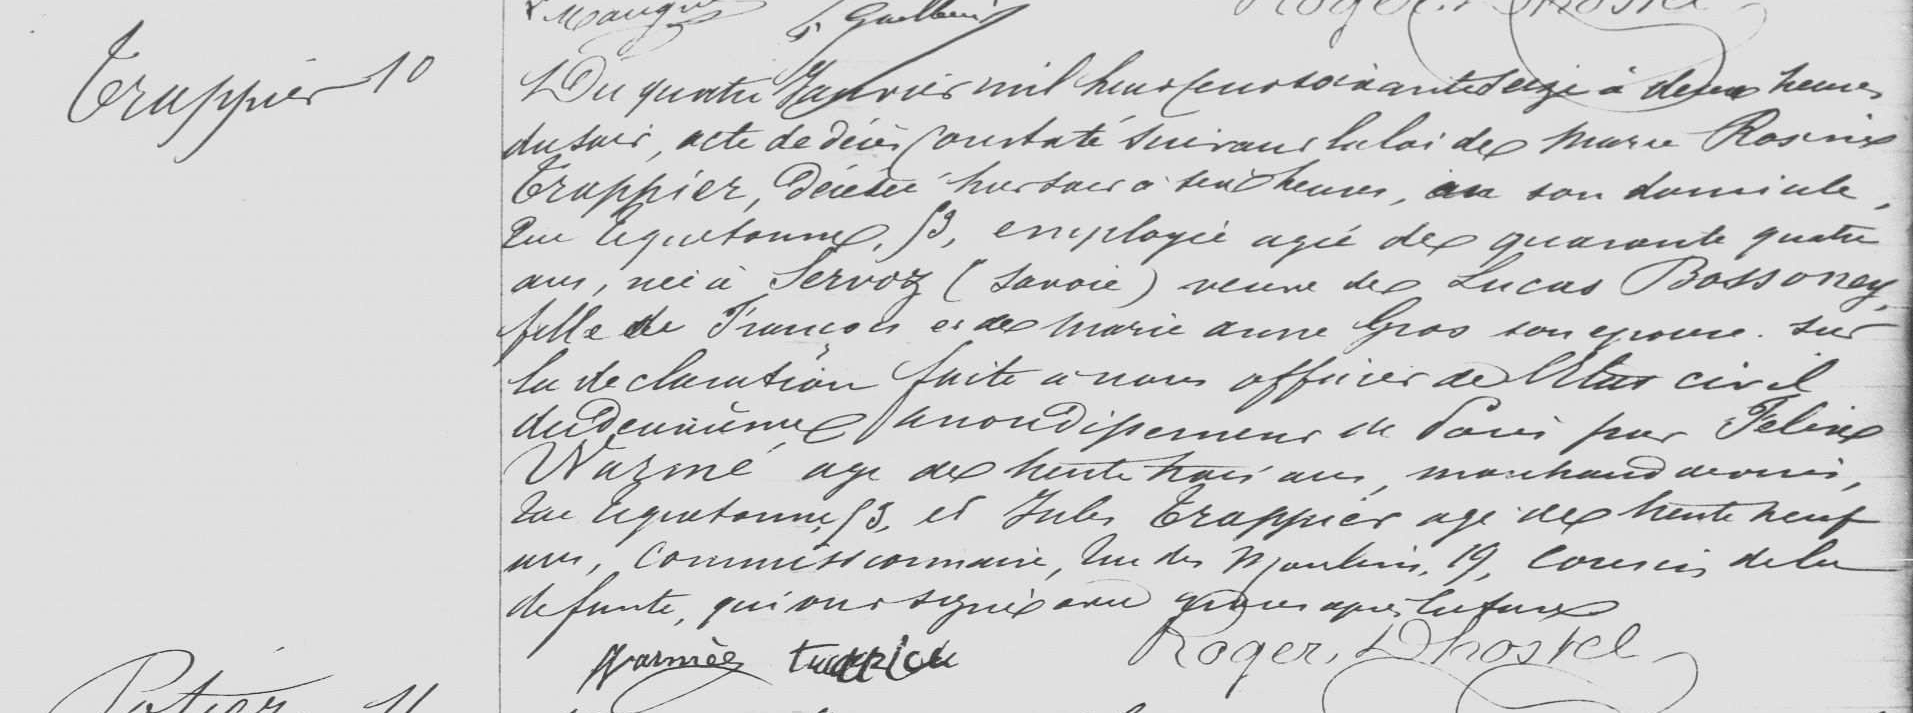 Roger. Dhostel
Trappier 10
Du quatre Janvier mil huit cent soixante seize à deux heures
du soir, acte de décès constaté suivant la loi de Marie Rosine
Trappier, décédée hier soir à six heures, en son domicile,
rue Tiquetonne, 53, employée agée de quarante quatre
ans, née à Servoz (Savoie) veuve de Lucas Bossoney,
fille de François et de Marie anne Gros son epouse. Sur
la declaration faite a nous officier de l'Etat civil
du Deuxième arrondissement de Paris par Felix
Warmé agé de trente trois ans, marchand de vins,
rue Tiquetonne, 53, et Jules Trappier agé de trente neuf
ans, commissionnaire, rue des Moulins, 19, cousin de la
defunte, qui ont signé avec nous après lecture
Warmée Roger, Dhostel
Potier 11